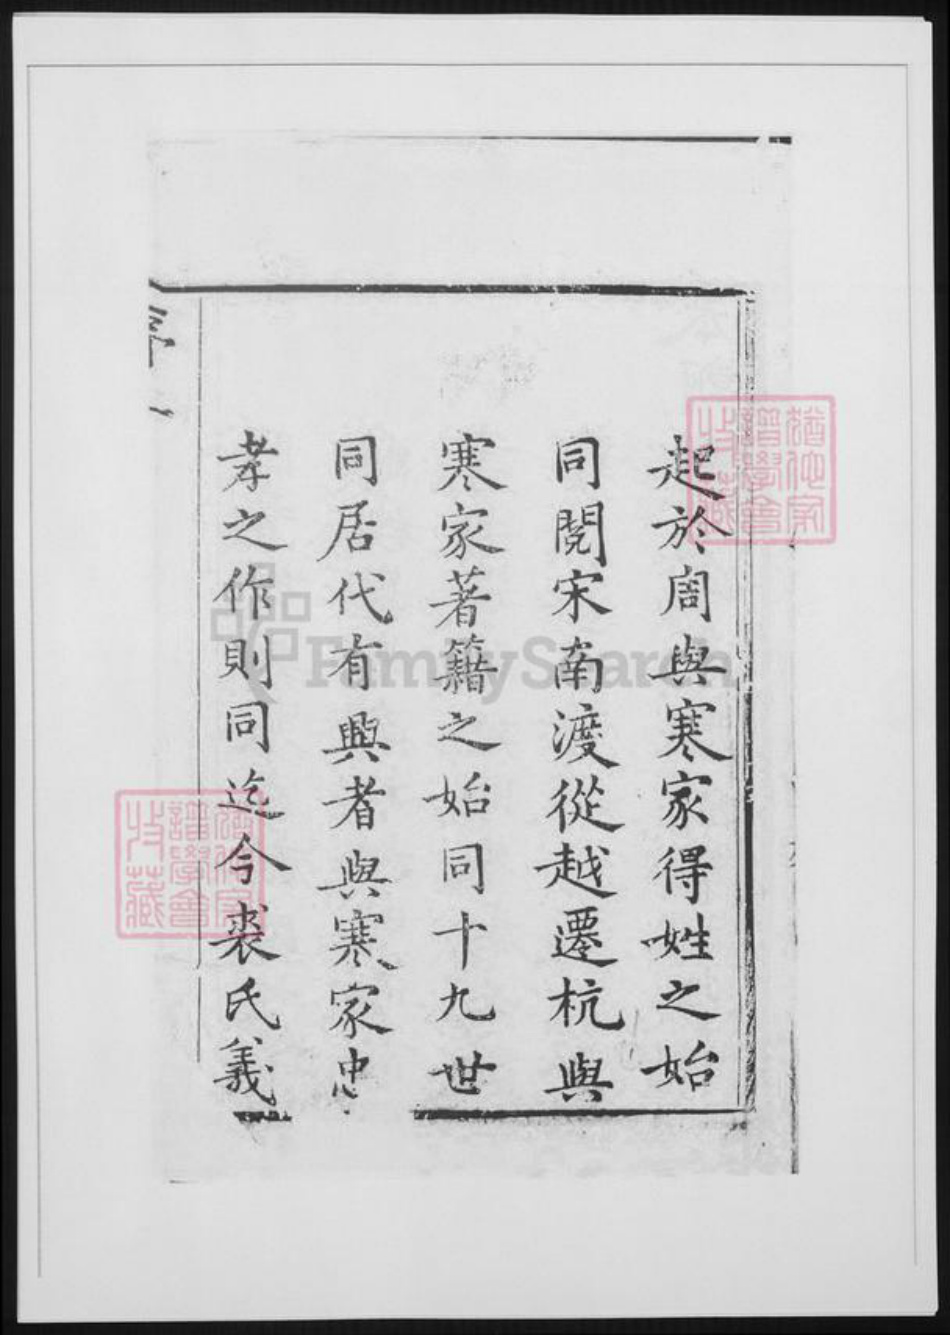 起於周與寒家得姓之始
同閱宋南渡從越遷杭與
寒家著籍之始同十九世
同居代有興者與寒家忠
孝之作則同迄今裘氏義
譜學會
收藏
FamilySearch
譜學會
收藏